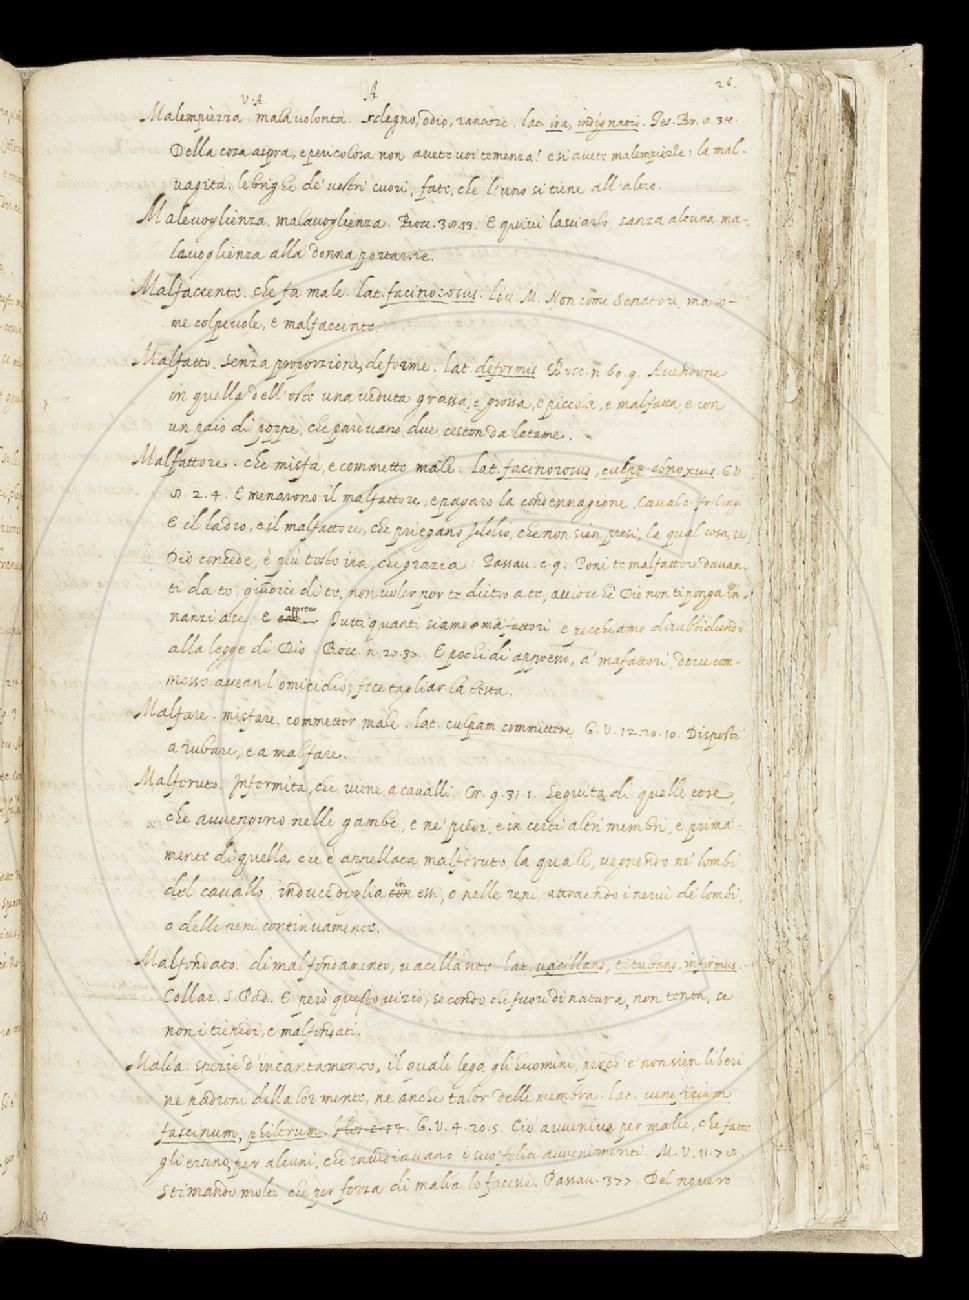 A
26.
V. A.
Malempiezza malavolontà. sdegno, odio, rancore. lat. ira, indignatio. Tes. Br. 8. 34.
Della cosa aspra, e pericolosa non avete voi temenza! e si avete malempiezze: la mal-
vagità, le brighe de' vostri cuori, fate, che l'uno si tiene all'altro.
Malevoglienza. malavoglienza. Bocc. 30.13. E quivi lasciarlo sanza alcuna ma-
lavoglienza alla donna portarne.
Malfaccente. che fa male. lat. facinorosus. liv. M. Non come Senatore, ma co-
me colpevole, e malfaccente.
Malfatto. senza proporzione, deforme. lat. deformis Bocc. n. 60. 9. Avendone
in quella dell'oste una veduta grassa, e grossa, e piccola, e malfatta, e con
un paio di poppe, che parevano due ceston da letame.
Malfattore. che misfà, e commette male. lat. facinorosus, culpę obnoxius. G. V.
8. 2. 4. E menarono il malfattore, e pagaro la condennagione. Cavalc. fr. ling.
E il ladro, e il malfattore, che priegano Iddio, che non sien presi, la qual cosa, se
Dio concede, è più tosto ira, che grazia. Passav. c. 9. Poni te malfattore davan-
ti da te, giudice di te, non voler por te dietro a te, acciocchè Dio non ti ponga in-
nanzi a se. E appresso Tutti quanti siamo mafattori e pecchiamo disubbidendo
alla legge di Dio. Bocc. n. 27. 37. E pochi dì appresso, a' mafattori, dove com-
messo avean l'omicidio, fece tagliar la testa.
Malfare. misfare, commetter male. lat. culpam committere. G. V. 12. 20. 10. Disposti
a rubare, e a malfare.
Malferuto. Infermità, che viene a cavalli. Cr. 9. 31. 1. Seguita di quelle cose,
che avvengono nelle gambe, e ne' piedi, e in certi altri membri, e prima-
mente di quella che è appellata malferuto, la quale, vegnendo ne' lombi
del cavallo, induce doglia in essi, o nelle reni, attraendo i nervi de' lombi,
o delle reni continuamente.
Malfondato. di mal fondamento, vacillante lat. vacillans, titubans, infirmus.
Collaz. S. Pad. E però questo vizio, secondo che fuori di natura, non tenta, se
non i tiepidi, e malfondati.
Malìa. spezie d'incantamento, il quale lega gli huomini, perchè e' non sien liberi,
ne padroni della lor mente, ne anche talor delle membra. lat. veneficium
fascinum, philtrum. G. V. 4. 20. 5. Ciò avveniva per malìe, che fatte
gli erano per alcuni, che invidiavano i suo' felici avvenimenti. M. V. 11. 78.
Stimando molti, che per forza di malìa lo facesse. Passav. 377. Del novero